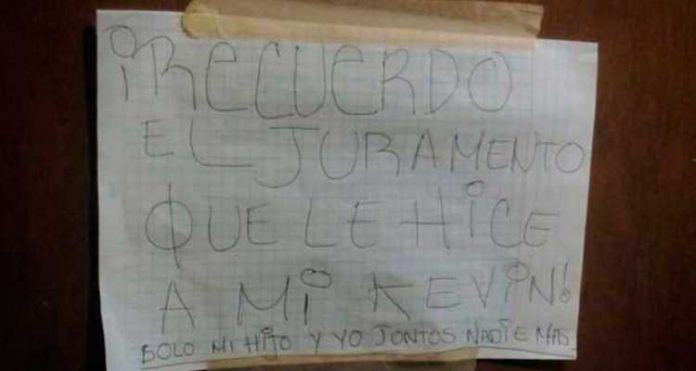 ¡RECUERDO
EL JURAMENTO
QUE LE HICE
A MI KEVIN!
SOLO MI HIJO Y YO JONTOS NADIE MAS